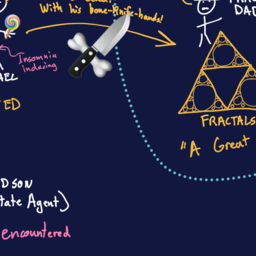 With his bone-knife-hands!
DAD
Insomnia
indexing
FRACTALS
"A Great
DSON
tate Agent)
encountered